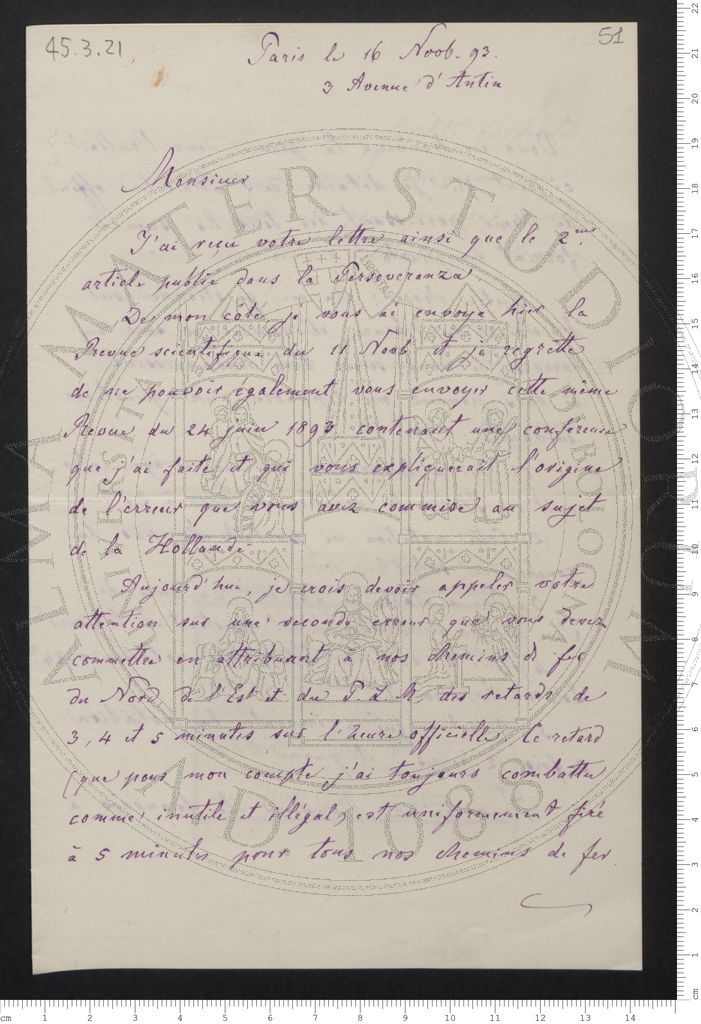 45.3.21
51
Paris le 16 Novb. 93.
3 Avenue d'Antin
Monsieur
J'ai reçu votre lettre ainsi que le 2me
article publié dans la Perseveranza
De mon coté, je vous ai envoyé hier la
Revue scientifique du 11 Novb et je regrette
de ne pouvoir également vous envoyer cette même
Revue du 24 juin 1893 contenant une conférence
que j'ai faite et qui vous expliquerait l'origine
de l'erreur que vous avez commise au sujet
de la Hollande
Aujourd'hui, je crois devoir appeler votre
attention sur une seconde erreur que vous devez
commettre en attribuant à nos chemins de fer
du Nord de l'Est et du P.L.M. des retards de
3, 4 et 5 minutes sur l'heure officielle. Ce retard
(que pour mon compte j'ai toujours combattu
comme inutile et illégal) est uniformément fixé
à 5 minutes pour tous nos chemins de fer
ALMA MATER STUDIORUM
A.D. 1088